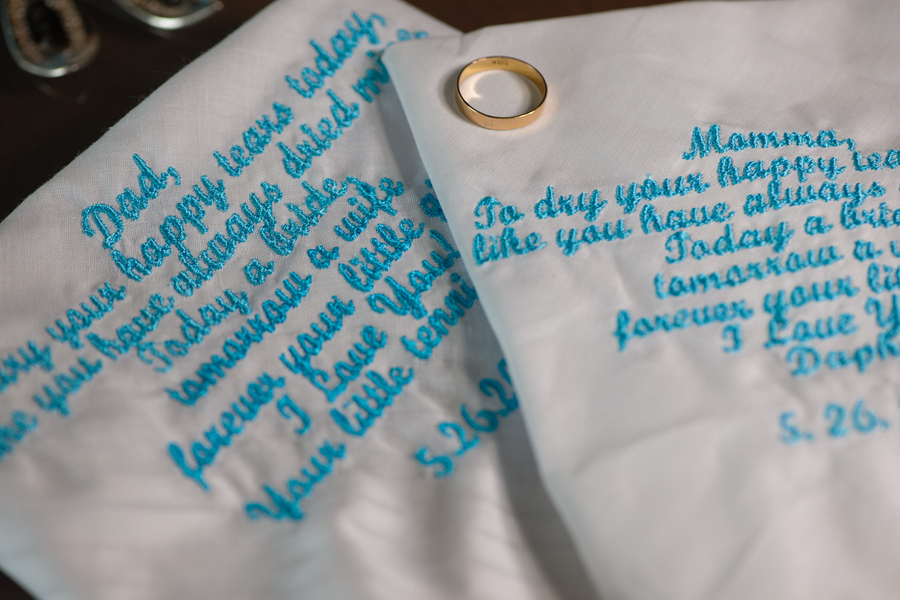 Dad,
dry your happy tears today,
like you have always dried
Today a bride
tomorrow a wife
forever your little
I Love You!
Your little
5.26.20
Momma,
To dry your happy
like you have always
Today a
tomorrow a
forever your
I Love
5.26.